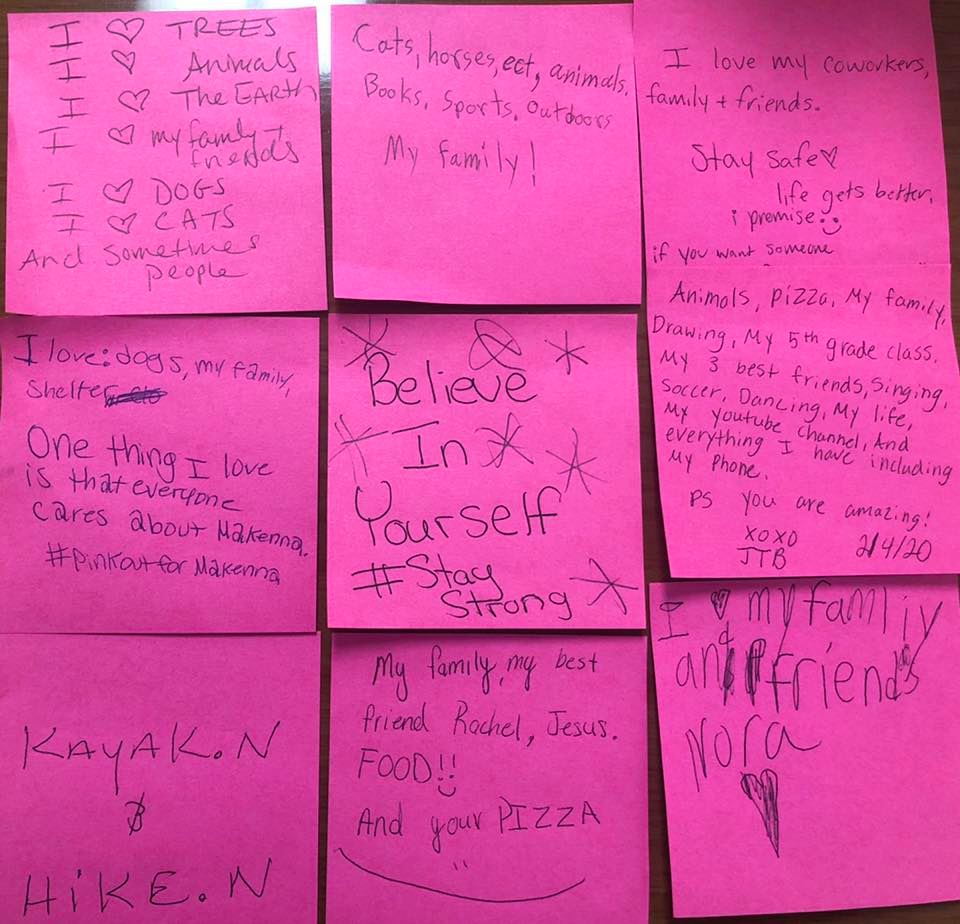 I ♡ TREES
I ♡ Animals
I ♡ The EARTH
I ♡ my family +
friends
I ♡ DOGS
I ♡ CATS
And sometimes
people
Cats, horses, ect, animals,
Books, Sports, Outdoors
My family!
I love my coworkers,
family + friends.
Stay safe♡
life gets better,
i premise :)
if you want someone
I love: dogs, my family,
Shelter
One thing I love
is that everyone
cares about Makenna.
#pinkoutforMakenna
Believe
In
Yourself
#Stay
Strong
Animals, pizza, My family,
Drawing, My 5th grade class,
My 3 best friends, Singing,
Soccer, Dancing, My life,
My youtube channel, And
everything I have including
My phone.
PS you are amazing!
XOXO
JTB 2/4/20
KAYAK.N
&
HiKE.N
My family, my best
friend Rachel, Jesus.
FOOD!! :)
And your PIZZA
I ♥ my famliy
ant friends
Nora
♥